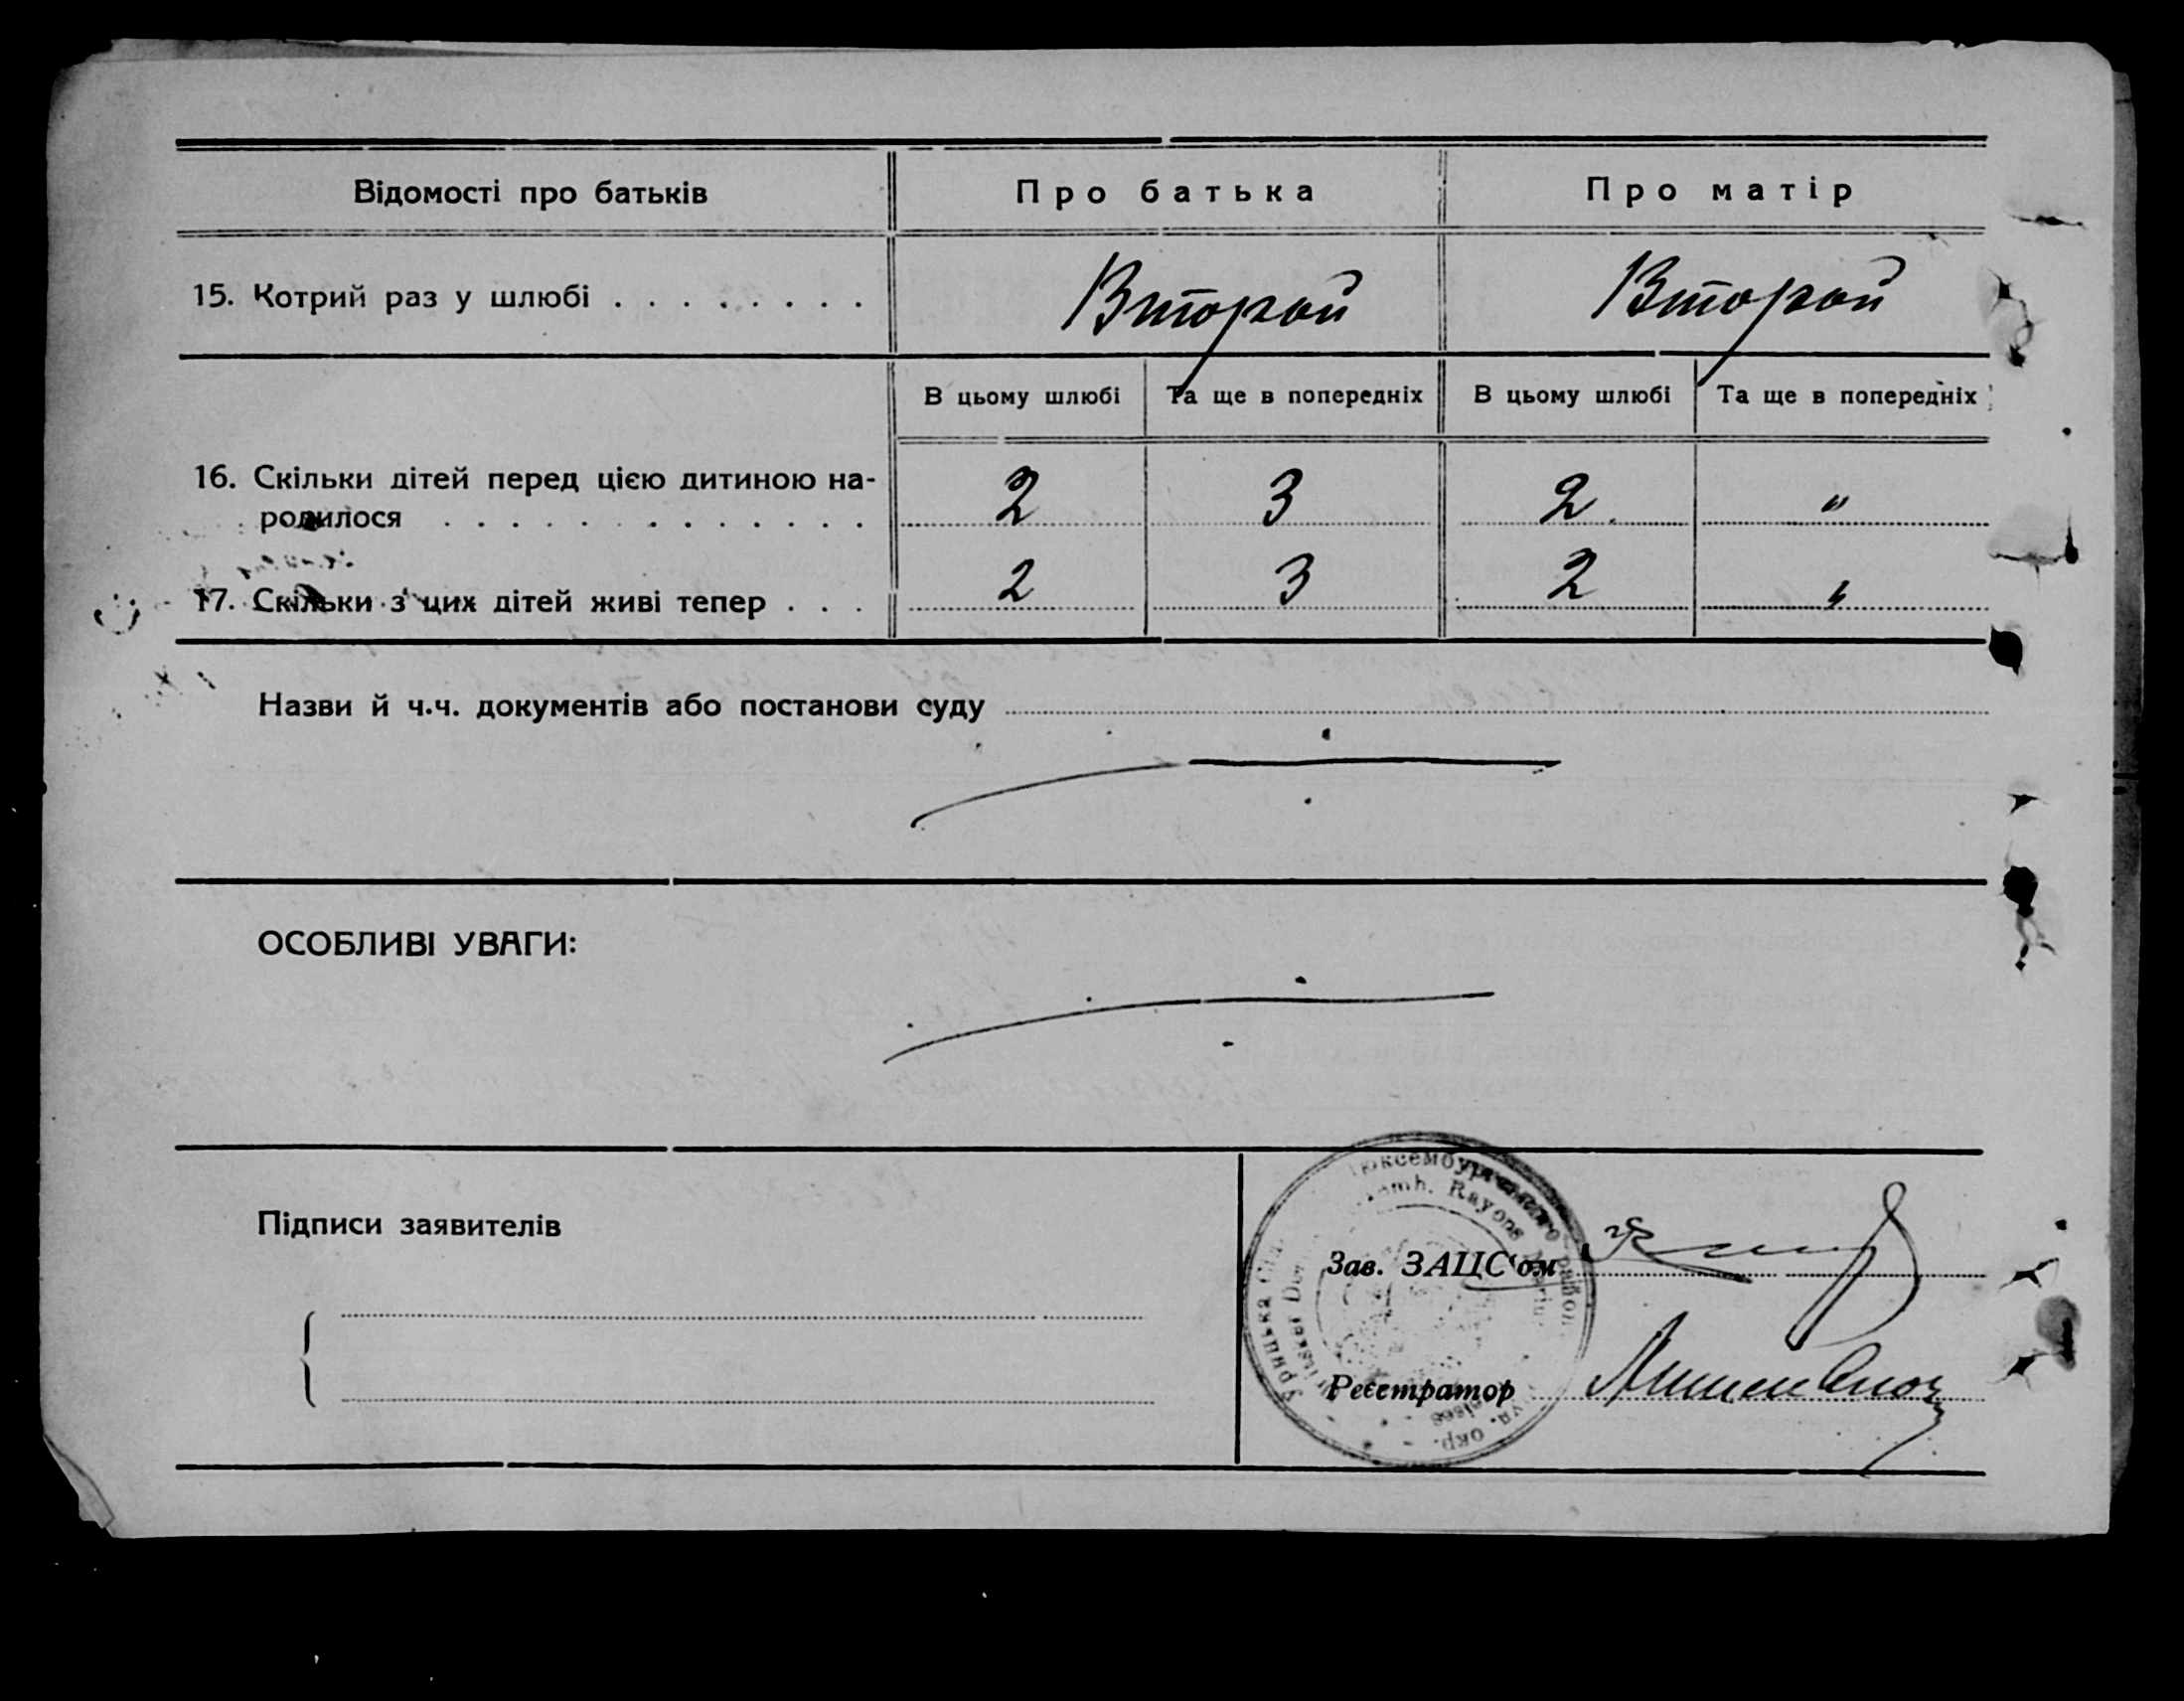 Відомості про батьків
Про батька
Про матір
15. Котрий раз у шлюбі . . . . . . . .
Второй
Второй
В цьому шлюбі
Та ще в попередніх
В цьому шлюбі
Та ще в попередніх
16. Скільки дітей перед цією дитиною на-
родилося . . . . . . . . . . . . .
2
3
2
"
17. Скільки з цих дітей живі тепер . . .
2
3
2
"
Назви й ч.ч. документів або постанови суду
ОСОБЛИВІ УВАГИ:
Підписи заявителів
Rayons
Зав. ЗАЦС'ом
Реєстратор
окр.